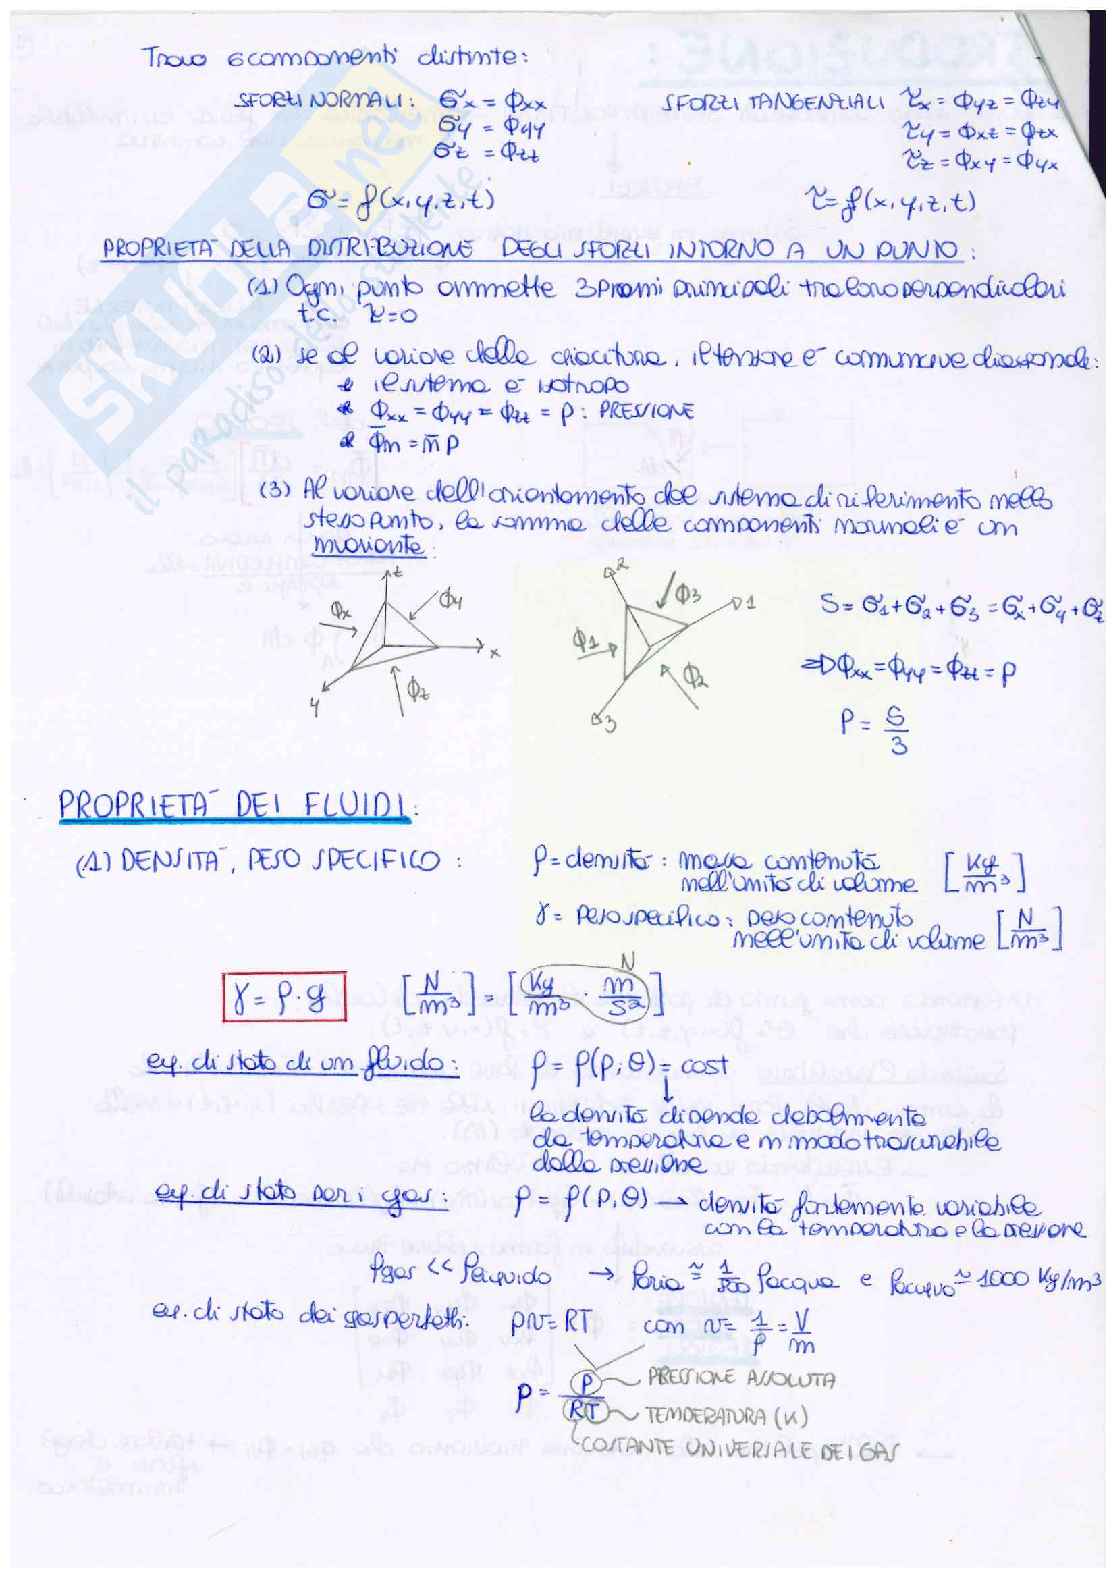 Trovo 6 componenti distinte:
SFORZI NORMALI: σx = Φxx
σy = Φyy
σz = Φzz
SFORZI TANGENZIALI τx = Φyz = Φzy
τy = Φxz = Φzx
τz = Φxy = Φyx
σ = f(x,y,z,t)
τ = f(x,y,z,t)
PROPRIETÀ DELLA DISTRIBUZIONE DEGLI SFORZI INTORNO A UN PUNTO:
(1) Ogni punto ammette 3 piani principali tra loro perpendicolari
t.c. τ=0
(2) Se al variare della giacitura, il tensore è comunque diagonale:
il sistema è isotropo
Φxx = Φyy = Φzz = p : PRESSIONE
Φn = n p
(3) Al variare dell'orientamento del sistema di riferimento nello
stesso punto, la somma delle componenti normali è un
invariante:
z
Φx
Φy
x
y
Φz
2
Φ3
1
Φ1
Φ2
3
S = σ1+σ2+σ3 = σx+σy+σz
⇒ Φxx = Φyy = Φzz = p
p = S/3
PROPRIETÀ DEI FLUIDI:
(1) DENSITÀ, PESO SPECIFICO:
ρ = densità: massa contenuta
nell'unità di volume [kg/m³]
γ = peso specifico: peso contenuto
nell'unità di volume [N/m³]
N
γ = ρ·g [N/m³] = [kg/m³ · m/s²]
eq. di stato di un fluido: ρ = ρ(p,θ) = cost
↓
la densità dipende debolmente
da temperatura e in modo trascurabile
dalla pressione
eq. di stato per i gas: ρ = ρ(p,θ) → densità fortemente variabile
con la temperatura e la pressione
ρgas << ρliquido → ρaria ≃ 1/800 ρacqua e ρacqua ≃ 1000 kg/m³
eq. di stato dei gas perfetti: pv = RT con v = 1/ρ = V/m
ρ = p/RT
PRESSIONE ASSOLUTA
TEMPERATURA (K)
COSTANTE UNIVERSALE DEI GAS
SKUOLA.net
il paradiso dello studente